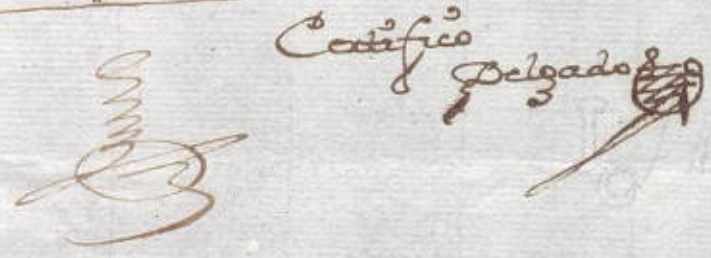 Certifico
Delgado